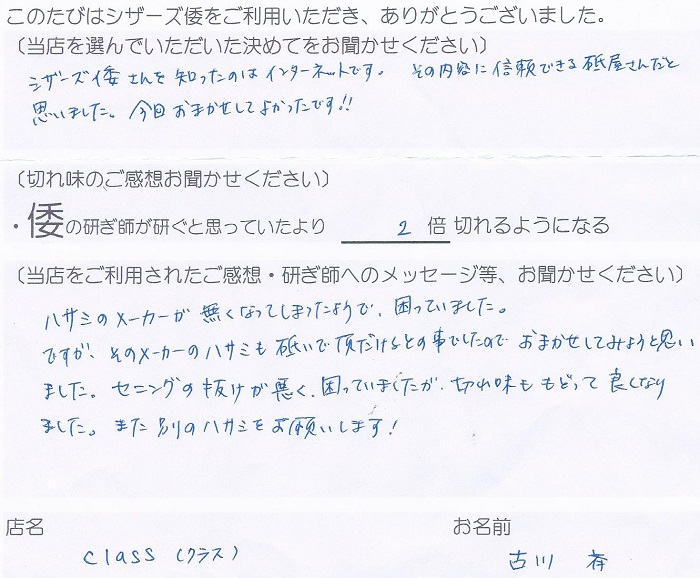 このたびはシザーズ倭をご利用いただき、ありがとうございました。
（当店を選んでいただいた決めてをお聞かせください）
シザーズ倭さんを知ったのはインターネットです。 その内容に信頼できる砥屋さんだと
思いました。今回おまかせしてよかったです!!
（切れ味のご感想お聞かせください）
・倭の研ぎ師が研ぐと思っていたより 2 倍 切れるようになる
（当店をご利用されたご感想・研ぎ師へのメッセージ等、お聞かせください）
ハサミのメーカーが無くなってしまったようで、困っていました。
ですが、そのメーカーのハサミも砥いで頂だけるとの事でしたので おまかせしてみようと思い
ました。セニングの抜けが悪く、困っていましたが、切れ味ももどって良くなり
ました。また別のハサミをお願いします!
店名 お名前
class (クラス) 古川